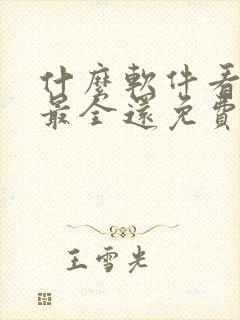 什麼軟件看
最全還免費
王雪光